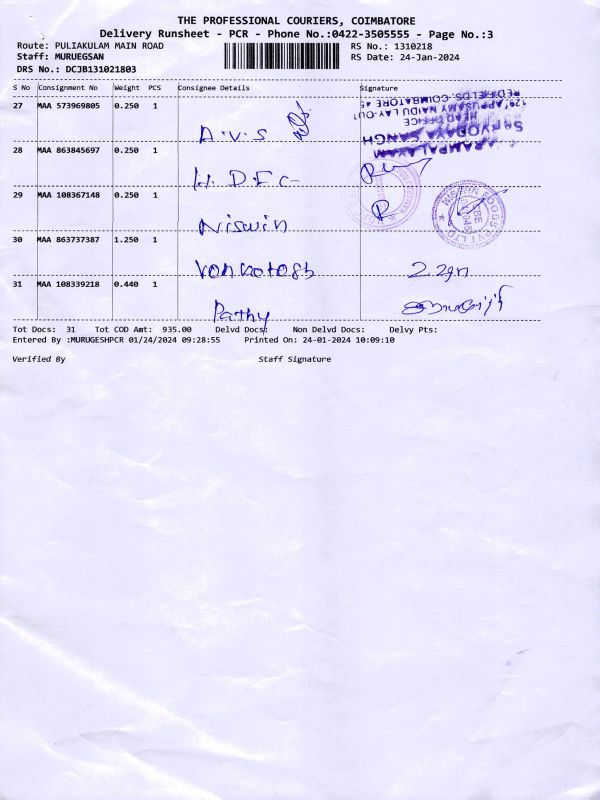 THE PROFESSIONAL COURIERS, COIMBATORE
Delivery Runsheet - PCR - Phone No.:0422-3505555 - Page No.:3
Route: PULIAKULAM MAIN ROAD
RS No.: 1310218
Staff: MURUEGSAN
RS Date: 24-Jan-2024
DRS No.: DCJB131021803
S No Consignment No Weight PCS Consignee Details Signature
27 MAA 573969805 0.250 1
A.V.S
SARVODAYA SANGH
HEAD OFFICE
129, APPUSAMY NAIDU LAY-OUT
REDFIELDS, COIMBATORE 45
28 MAA 863845697 0.250 1
H.D.F.C
29 MAA 108367148 0.250 1
Niswin
NISWIN FOODS PVT LTD
30 MAA 863737387 1.250 1
Venkatesh
31 MAA 108339218 0.440 1
Pathy
Tot Docs: 31 Tot COD Amt: 935.00 Delvd Docs: Non Delvd Docs: Delvy Pts:
Entered By :MURUGESHPCR 01/24/2024 09:28:55 Printed On: 24-01-2024 10:09:10
Verified By Staff Signature